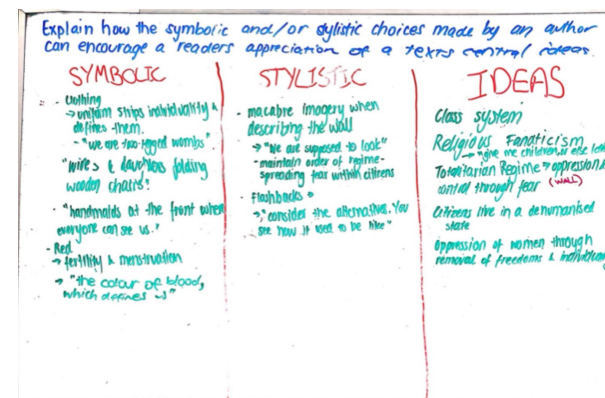 Explain how the symbolic and/or stylistic choices made by an author
can encourage a readers appreciation of a texts central ideas.
SYMBOLIC
- Clothing
→ uniform strips individuality &
defines them.
- "we are two-legged wombs".
"wives & daughters folding
wooden chairs"
- "handmaids at the front where
everyone can see us."
- Red
→ fertility & menstruation
→ "the colour of blood,
which defines us"
STYLISTIC
- macabre imagery when
describing the wall
→ "We are supposed to look"
- maintain order of regime-
spreading fear within citizens
- Flashbacks
→ "consider the alternatives. You
see how it used to be like"
IDEAS
Class system
Religious Fanaticism
→ "give me children, or else
Totalitarian Regime → oppression &
control through fear
(WALL)
Citizens live in a dehumanised
state
Oppression of women through
removal of freedoms &